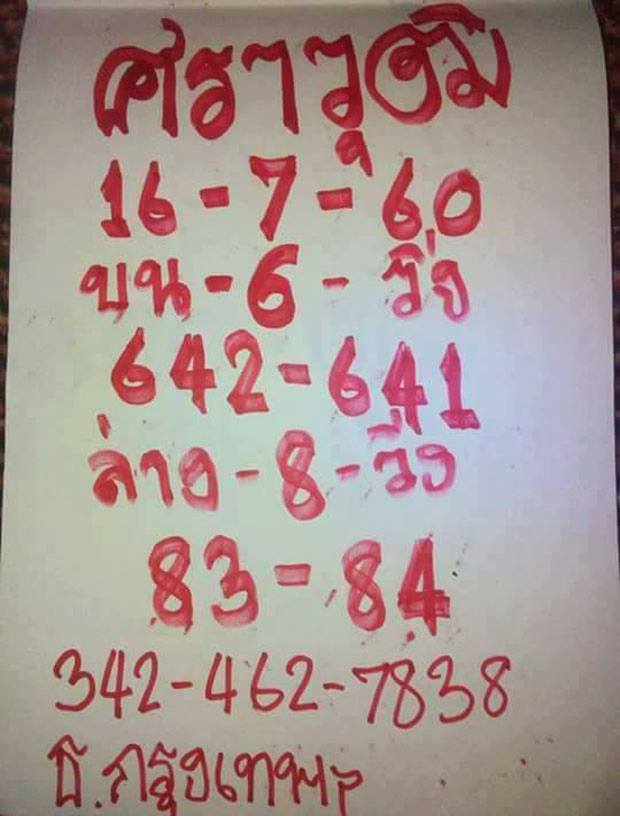 ศราวุฒิ
16-7-60
บน-6-วิ่ง
642-641
ล่าง-8-วิ่ง
83-84
342-462-7838
ธ.กรุงเทพฯ